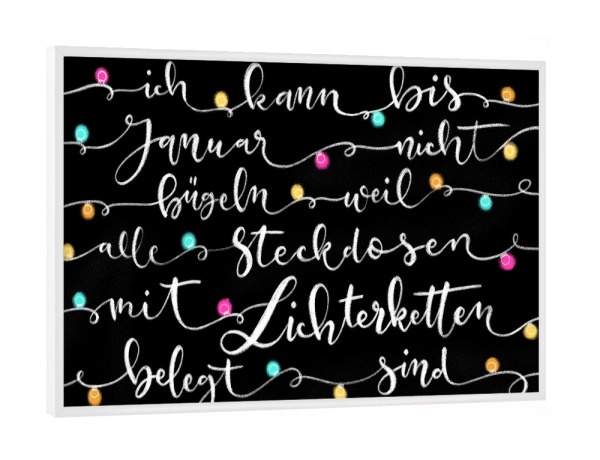 ich kann bis
Januar nicht
bügeln weil
alle Steckdosen
mit Lichterketten
belegt sind